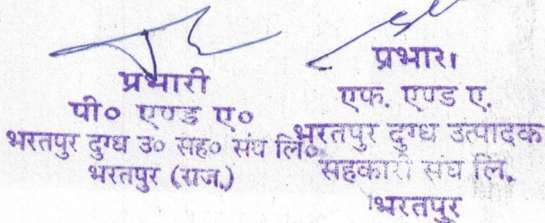 प्रभारी
पी० एण्ड ए०
भरतपुर दुग्ध उ० सह० संघ लि०
भरतपुर (राज.)
प्रभारी
एफ. एण्ड ए.
भरतपुर दुग्ध उत्पादक
सहकारी संघ लि.
भरतपुर